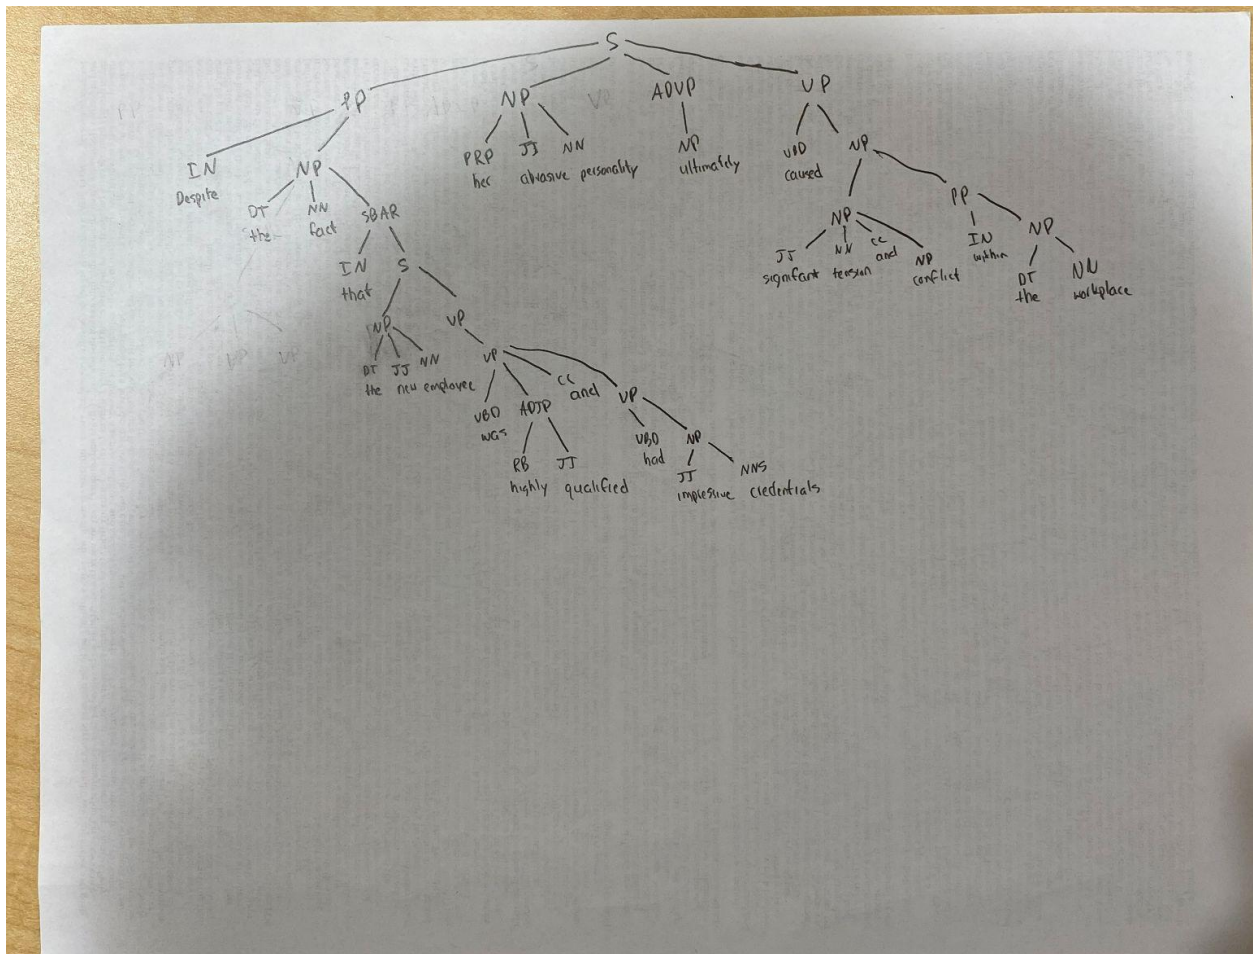 S
PP NP ADVP VP
IN NP PRP JJ NN NP VBD NP
Despite her abrasive personality ultimately caused
DT NN SBAR NP PP
the fact JJ NN CC NP IN NP
IN S signifant tension and conflict within DT NN
that the workplace
NP VP
DT JJ NN VP
the new employee VBD ADJP CC VP
was and
RB JJ VBD NP
highly qualified had JJ NNS
impressive credentials